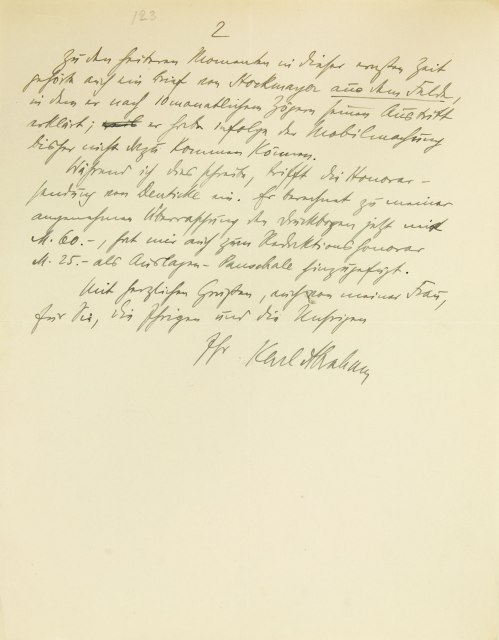 123
2
Zu den heiteren Momenten in dieser ernsten Zeit
gehört auch ein Brief von Stockmayer aus dem Felde,
in dem er nach 10monatlichem Zögern seinen Austritt
erklärt; er habe infolge der Mobilmachung
bisher nicht dazu kommen können.
Während ich dies schreibe, trifft die Honorar-
sendung von Deuticke ein. Er berechnet zu meiner
angenehmen Überraschung den Druckbogen jetzt mit
M. 60.-, hat mir auch zum Redaktionshonorar
M. 25.- als Auslagen-Pauschale hinzugefügt.
Mit herzlichen Grüßen, auch von meiner Frau,
für Sie, die Ihrigen und die Unsrigen
Ihr Karl Abraham